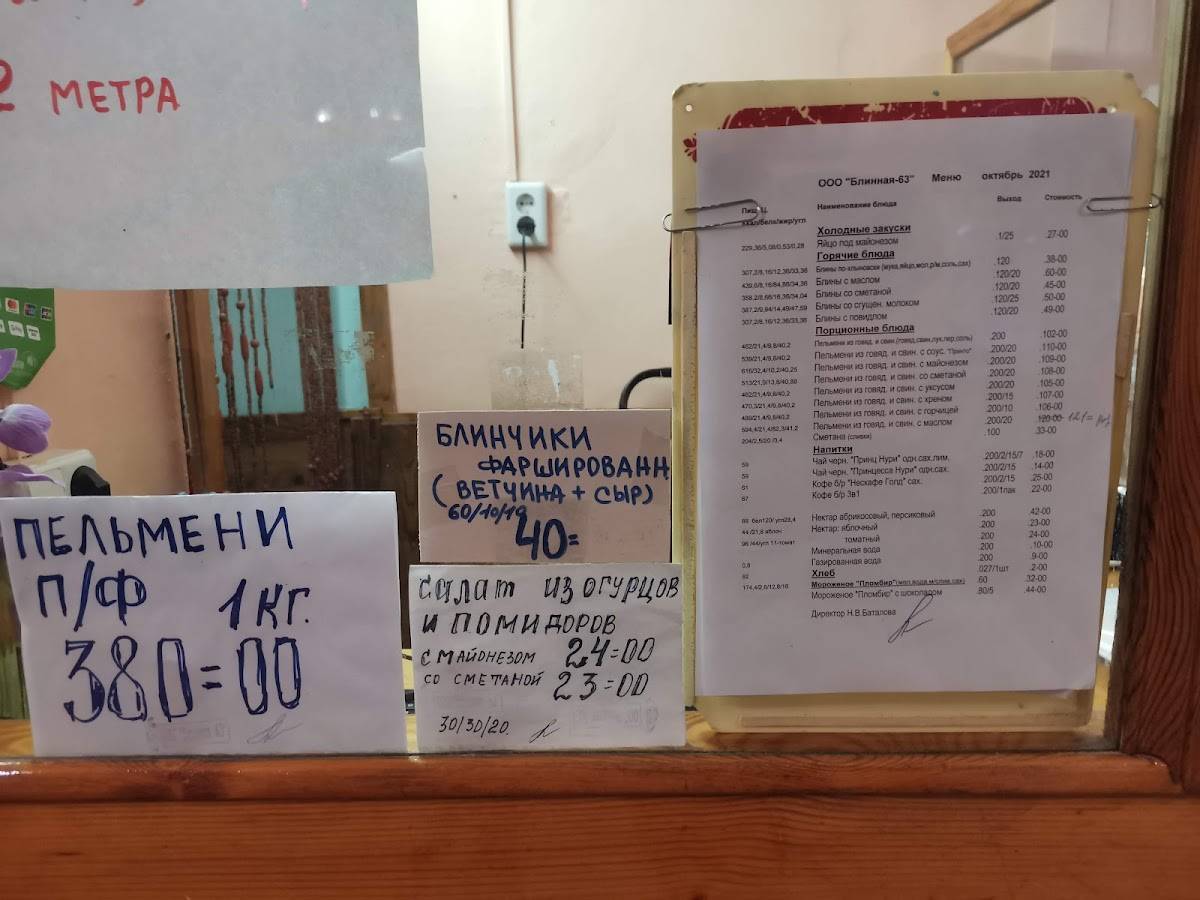 2 МЕТРА
ПЕЛЬМЕНИ
П/Ф 1 КГ.
380=00
БЛИНЧИКИ
ФАРШИРОВАНН
(ВЕТЧИНА + СЫР)
60/10/10
40=
САЛАТ ИЗ ОГУРЦОВ
И ПОМИДОРОВ
С МАЙОНЕЗОМ 24=00
СО СМЕТАНОЙ 23=00
30/30/20.
ООО "Блинная-63" Меню октябрь 2021
Наименование блюда Выход Стоимость
ккал/белк/жир/угл
Холодные закуски
229,36/5,08/0,53/0,28 Яйцо под майонезом .1/25 .27-00
Горячие блюда
307,2/8,16/12,36/33,36 Блины по-хлыновски (мука,яйцо,мол,р/м,соль,сах) .120 .38-00
Блины с маслом .120/20 .60-00
Блины со сметаной .120/20 .45-00
387,2/9,94/14,49/47,59 Блины со сгущен. молоком .120/25 .50-00
307,2/8,16/12,36/33,36 Блины с повидлом .120/20 .49-00
Порционные блюда
462/21,4/9,8/40,2 Пельмени из говяд. и свин. (говяд,свин,лук,пер,соль) .200 .102-00
539/21,4/9,8/40,2 Пельмени из говяд. и свин. с соус. .200/20 .110-00
616/32,4/10,2/40,25 Пельмени из говяд. и свин. с майонезом .200/20 .109-00
Пельмени из говяд. и свин. со сметаной .200/20 .108-00
462/21,4/9,8/40,2 Пельмени из говяд. и свин. с уксусом .200/20 .105-00
470,3/21,4/9,8/40,2 Пельмени из говяд. и свин. с хреном .200/15 .107-00
Пельмени из говяд. и свин. с горчицей .200/10 .106-00
Пельмени из говяд. и свин. с маслом .200/20 .120-00 121=
Сметана (сливки) .100 .33-00
Напитки
59 Чай черн. "Принц Нури" одн.сах.лим. .200/2/15/7 .18-00
59 Чай черн. "Принцесса Нури" одн.сах. .200/2/15 .14-00
51 Кофе б/р "Нескафе Голд" сах. .200/2/15 .25-00
67 Кофе б/р 3в1 .200/1пак 22-00
Нектар абрикосовый, персиковый .200 .42-00
Нектар: яблочный .200 .23-00
томатный .200 24-00
Минеральная вода .200 .10-00
Газированная вода .200 .9-00
Хлеб .027/1шт .2-00
Мороженое "Пломбир" .60 .32-00
Мороженое "Пломбир" с шоколадом .80/5 .44-00
Директор Н.В.Баталова